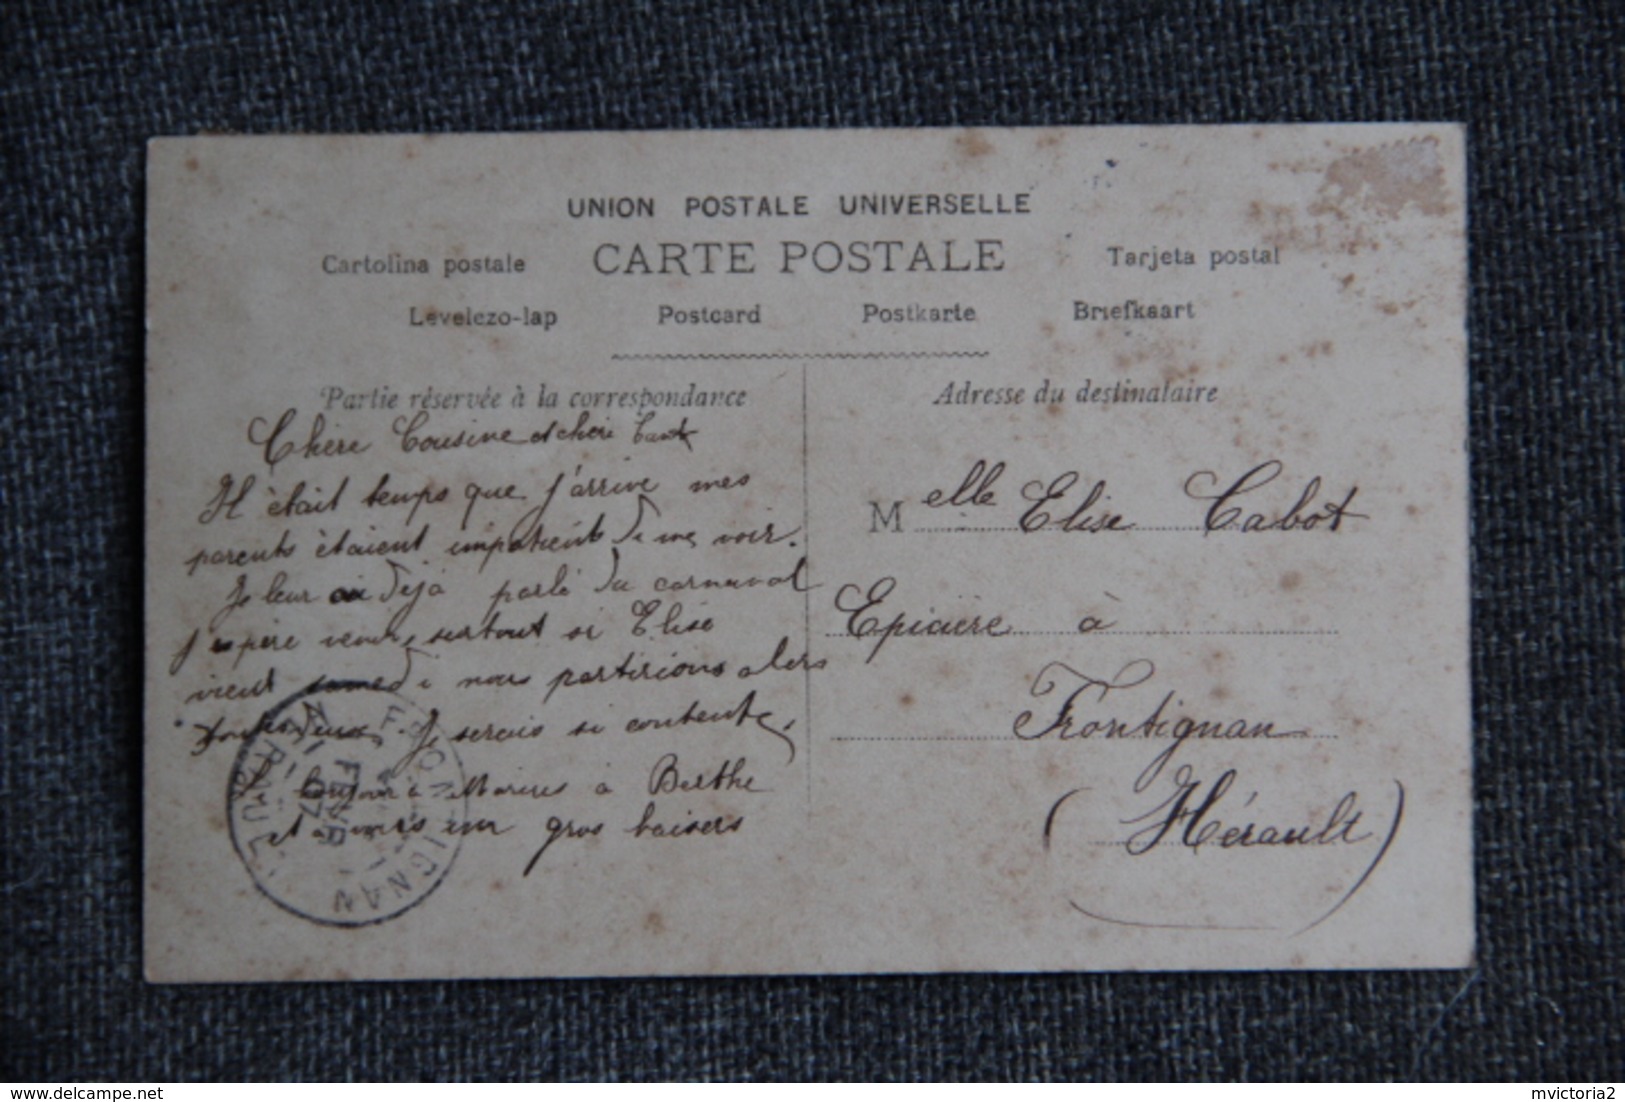 UNION POSTALE UNIVERSELLE
CARTE POSTALE
Cartolina postale
Tarjeta postal
Levelezo-lap
Postcard
Postkarte
Briefkaart
Partie réservée à la correspondance
Chère Cousine et chère
Il était temps que j'arrive mes
parents étaient impatients de me voir.
Je leur ai déjà parlé du carnaval
j'espère venir, surtout si Elise
vient samedi nous partirions alors
toutes deux. Je serais si contente,
bonjour à Marius à Berthe
et à vous un gros baisers
Adresse du destinataire
Melle Elise Cabot
Epicière à
Frontignan
(Hérault)
FRONTIGNAN
HERAULT
FEVR
07
www.delcampe.net
mvictoria2